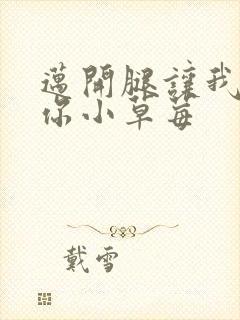 邁開腿讓我
你小草莓
戴雪